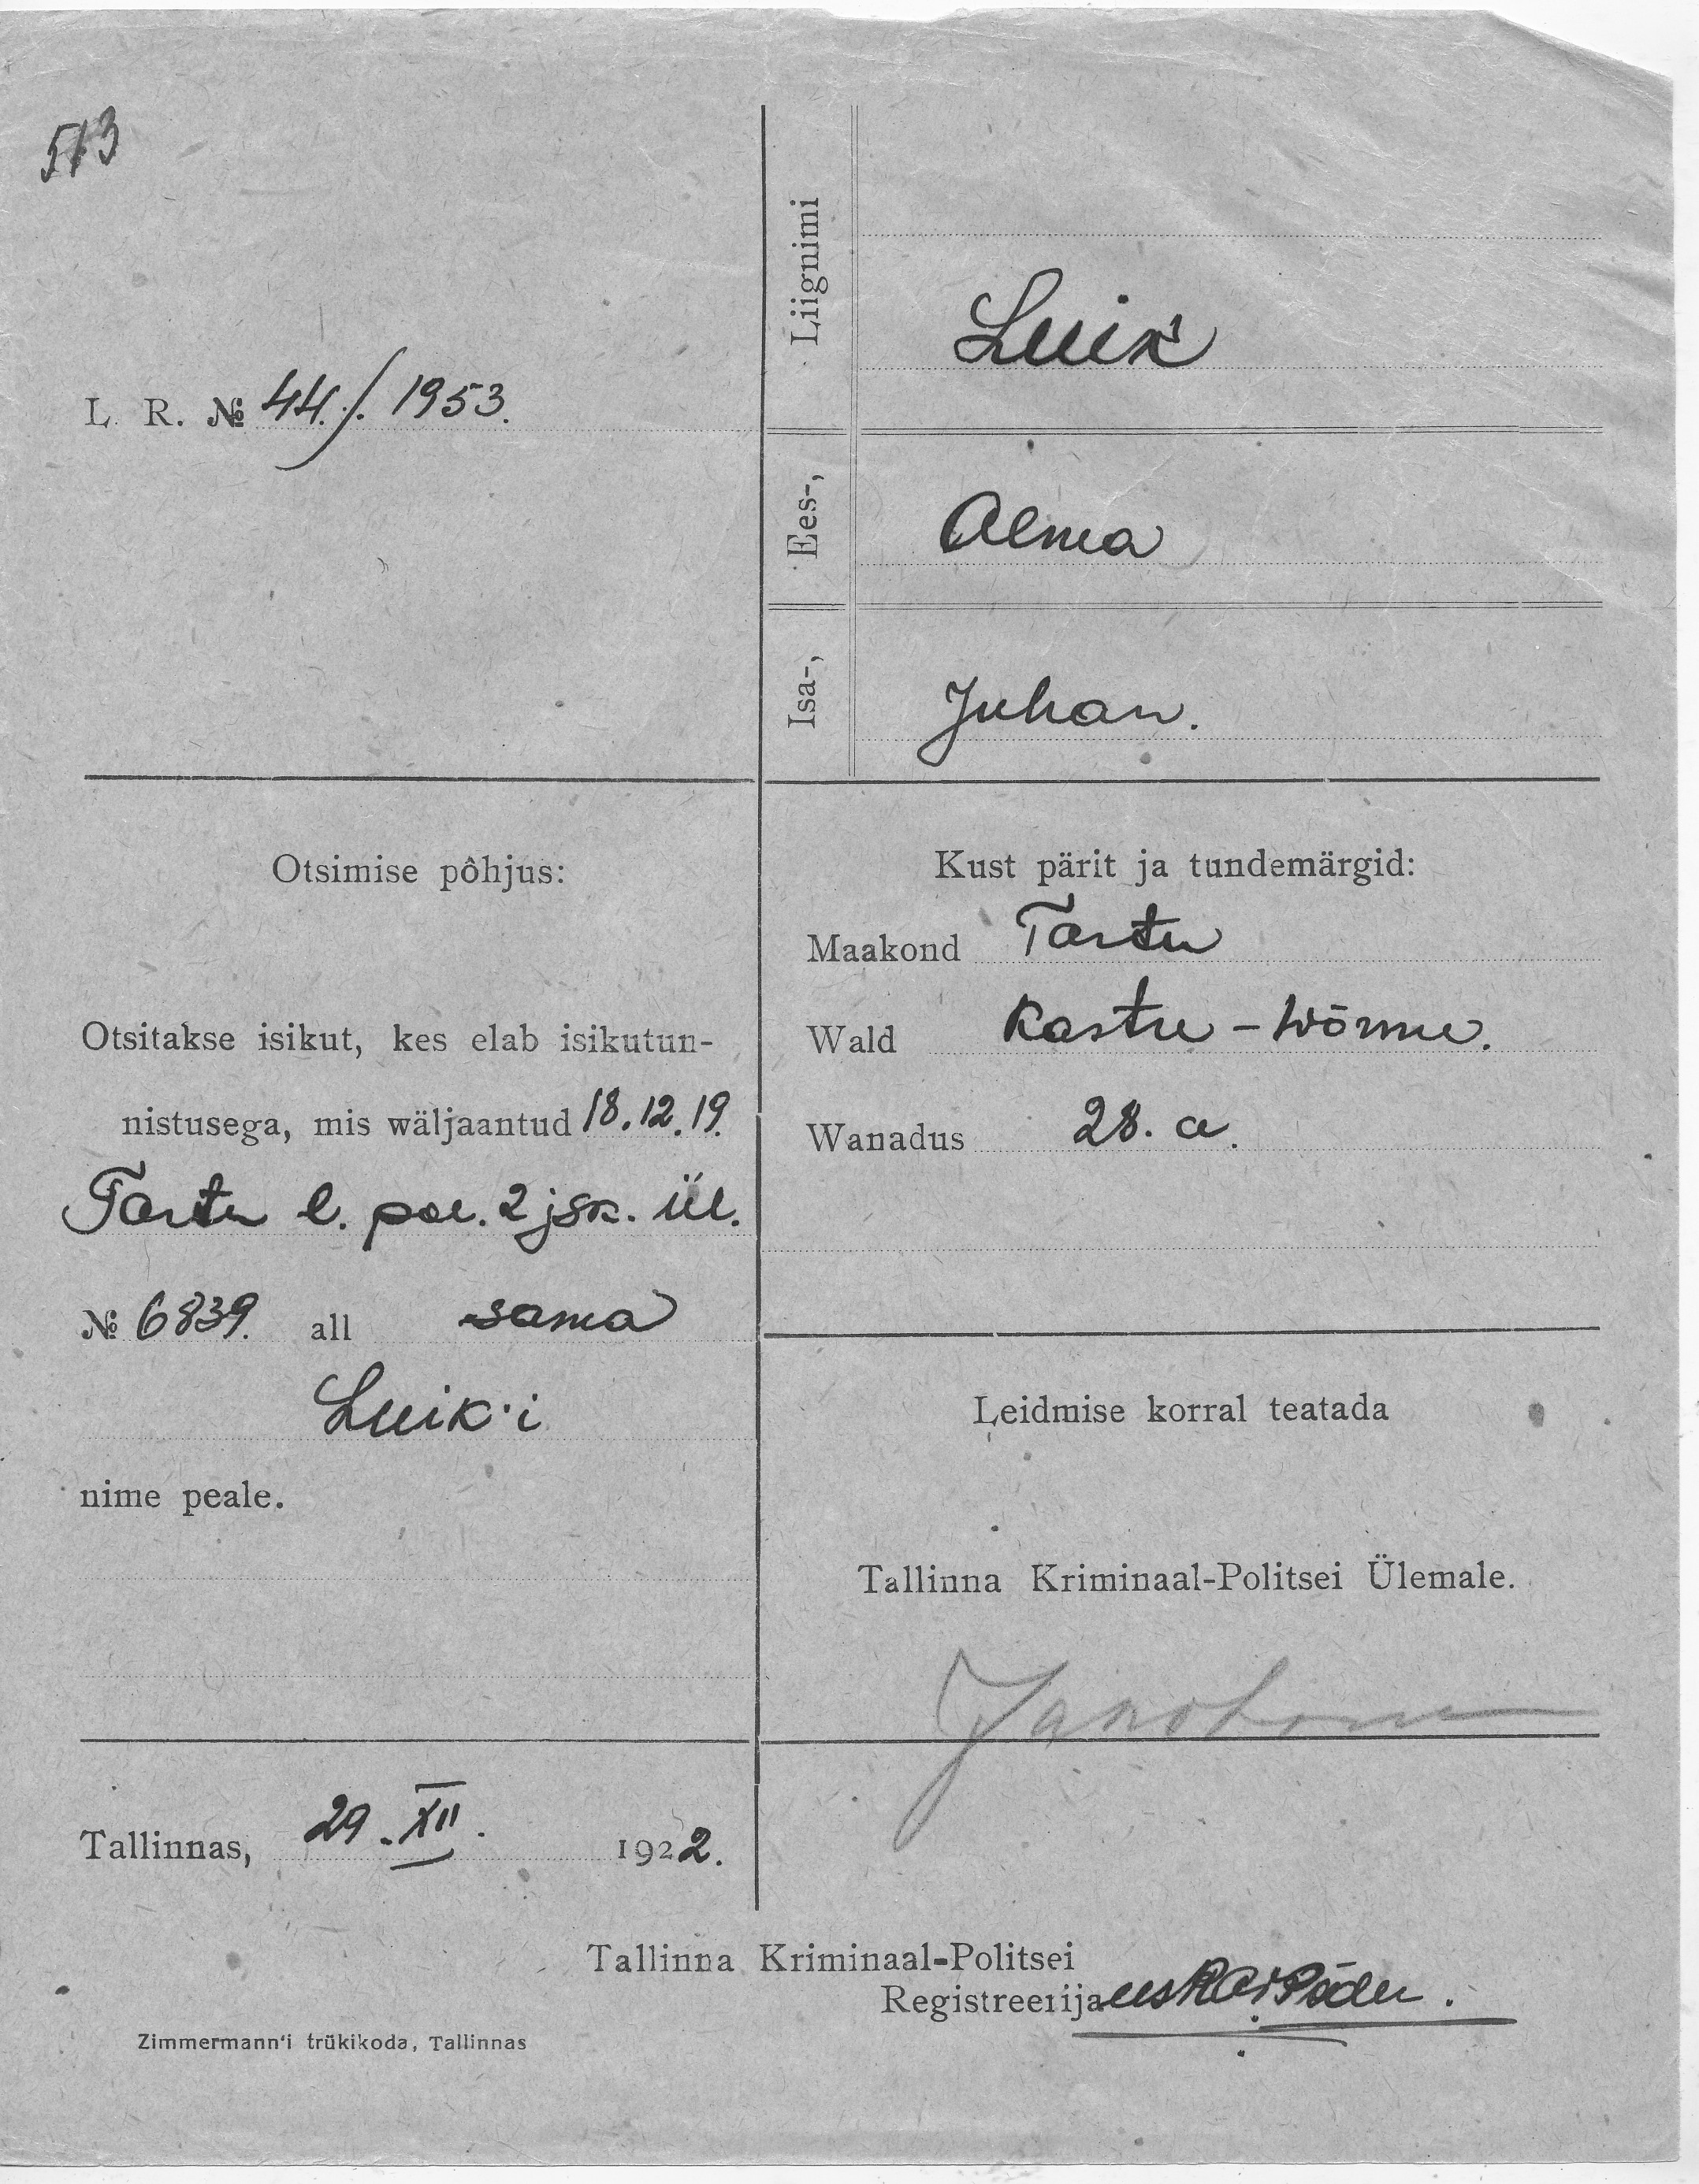 513
L. R. № 44./. 1953.
Liignimi
Luik
Ees-,
Alma
Isa-,
Juhan.
Otsimise põhjus:
Otsitakse isikut, kes elab isikutun-
nistusega, mis wäljaantud 18.12.19.
Tartu l. pol. 2 jsk. ül.
№ 6839. all sama
Luik'i
nime peale.
Kust pärit ja tundemärgid:
Maakond Tartu
Wald Kastre-Wõnnu.
Wanadus 28. a.
Leidmise korral teatada
Tallinna Kriminaal-Politsei Ülemale.
Tallinnas, 29. XII. 1922.
Tallinna Kriminaal-Politsei
Registreerija
Zimmermann'i trükikoda, Tallinnas